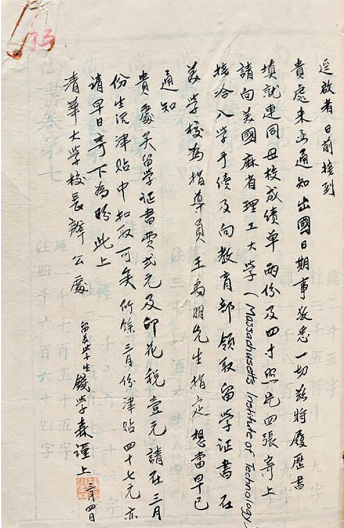 迳启者日前接到
贵处来函通知出國日期事敬悉一切兹将履歷書
填就連同母校成绩单两份及四寸照片四張寄上
請向美國麻省理工大学 Massachusetts Institute of Technology
接洽入学手续及向教育部领取留学证書 在
美学校為指導員王助先生指定想當早已
通知
貴處关留学証書费弍元及印花税壹元請在三月
份生活津贴中扣取可矣所餘三月份津贴四十七元亦
請早日寄下為盼此上
清華大学校長辦公處
留美学生 錢学森謹上 三月四日
33